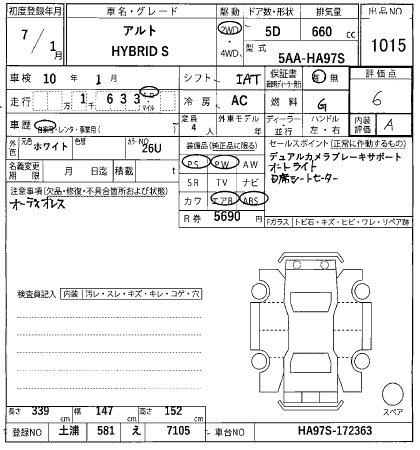 初度登録年月 車名・グレード 駆動 ドア数・形状 排気量 出品NO
7/1月 アルト HYBRID S 2WD・4WD 5D 660cc 1015
型式 5AA-HA97S
車検 10年 1月 シフト IAT 保証書 有 無 評価点
走行 万 1千 6 3 3 km マイル 冷房 AC 燃料 G 6
車歴 自家用・レンタ・事業用( ) 定員 4人 外車モデル 年 ディーラー・並行 ハンドル 左・右 内装評価 A
外色 元色 ホワイト 色替 カラーNO 26U 装備品(純正品に限る) セールスポイント(正常に作動するもの)
名義変更期限 月 日迄 積載 t PS PW AW デュアルカメラブレーキサポート
注意事項(欠品・修復・不具合箇所および状態) SR TV ナビ オートライト
オーディオレス カワ エアB ABS D席シートヒーター
R券 5690円 Fガラス トビ石・キズ・ヒビ・ワレ・リペア跡
検査員記入 内装 汚レ・スレ・キズ・キレ・コゲ・穴
スペア
長さ 339cm 幅 147cm 高さ 152cm
登録NO 土浦 581 え 7105 車台NO HA97S-172363